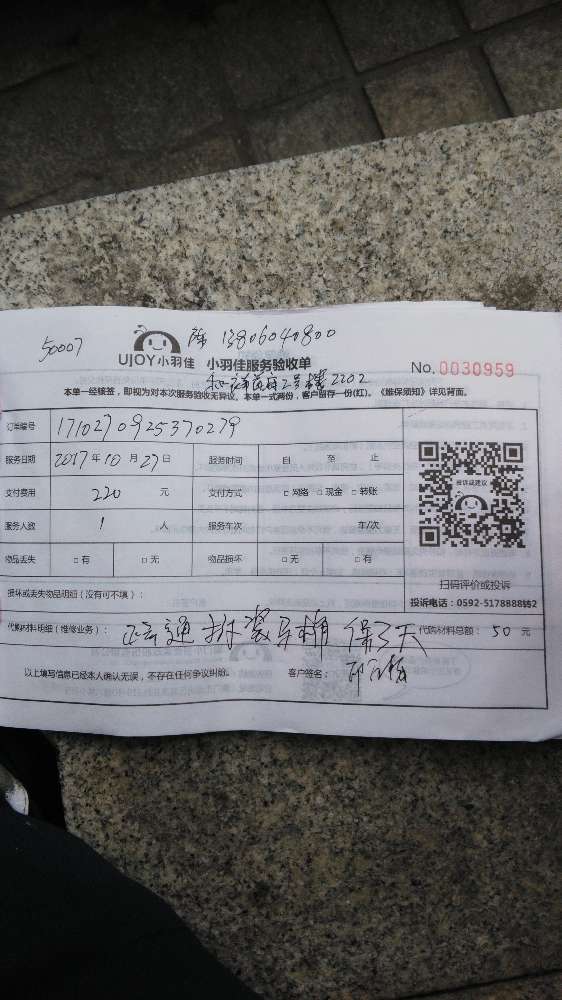 50007 陈 13806040800
UJOY小羽佳 小羽佳服务验收单 No. 0030959
2号楼2202
本单一经核签，即视为对本次服务验收无异议。本单一式两份，客户留存一份(红)。《维保须知》详见背面。
订单编号 1710270925370279
服务日期 2017年10月27日 服务时间 自 至 止
投诉或建议
支付费用 220 元 支付方式 □网络 □现金 □转账
服务人数 1 人 服务车次 车/次
物品丢失 □有 □无 物品损坏 □无 □有
扫码评价或投诉
损坏或丢失物品明细（没有可不填）：
投诉电话：0592-5178888转2
代购材料明细（维修业务）： 通 拆装马桶 保3天 代购材料总额： 50 元
以上填写信息已经本人确认无误，不存在任何争议纠纷。 客户签名：